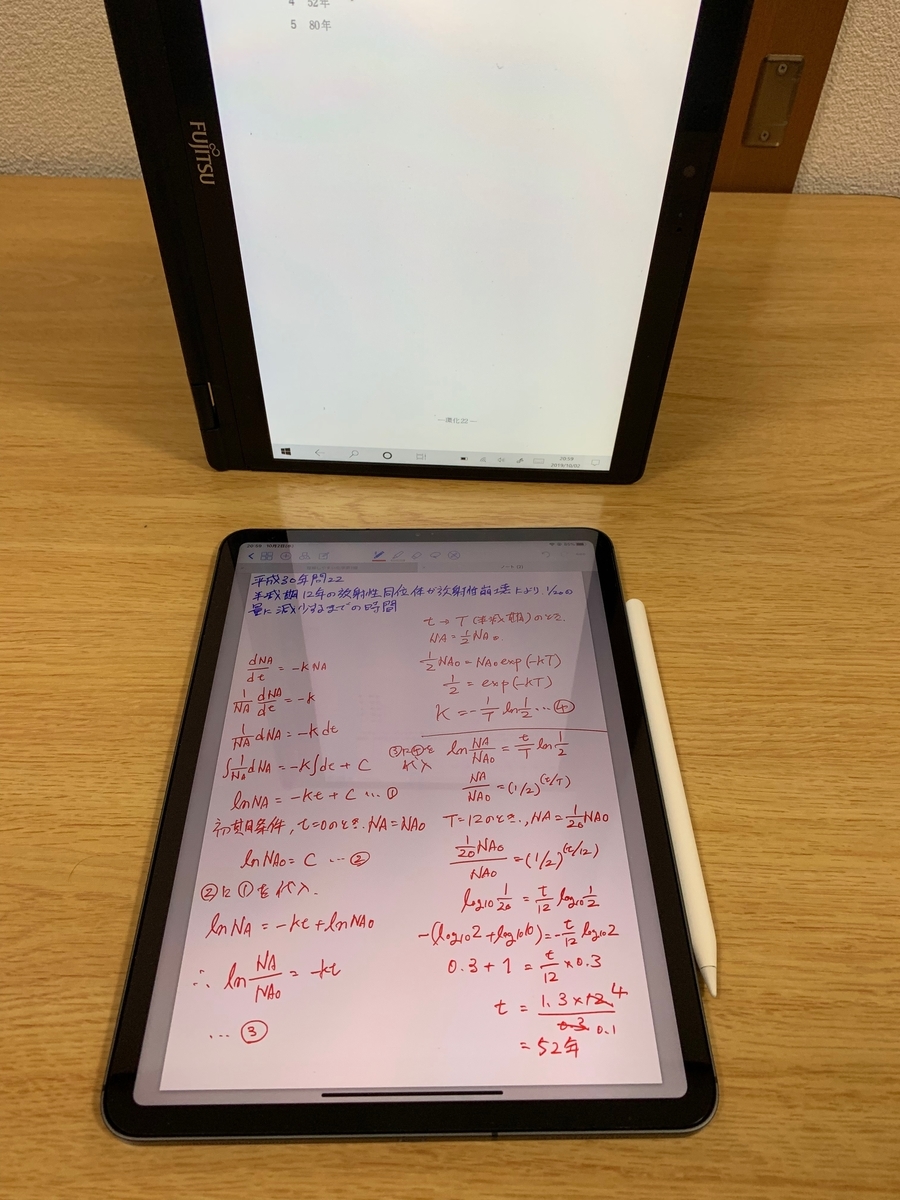 4 52年
5 80年
FUJITSU
2019/10/02
平成30年問22
半減期12年の放射性同位体が放射性崩壊により1/20の
量に減少するまでの時間
dNA/dt = -kNA
1/NA dNA/dt = -k
1/NA dNA = -kdt
∫1/NA dNA = -k∫dt + C
lnNA = -kt + C … ①
初期条件, t=0のとき. NA=NA0
lnNA0 = C … ②
②に①を代入.
lnNA = -kt + lnNA0
∴ ln NA/NA0 = -kt
… ③
t → T (半減期)のとき.
NA = 1/2 NA0
1/2 NA0 = NA0 exp(-kT)
1/2 = exp(-kT)
K = -1/T ln 1/2 … ④
③に④を代入
ln NA/NA0 = t/T ln 1/2
NA/NA0 = (1/2)^(t/T)
T=12のとき., NA = 1/20 NA0
1/20 NA0 / NA0 = (1/2)^(t/12)
log10 1/20 = t/12 log10 1/2
-(log10 2 + log10 10) = -t/12 log10 2
0.3 + 1 = t/12 × 0.3
t = 1.3 × 12 4 / 0.3 0.1
= 52年